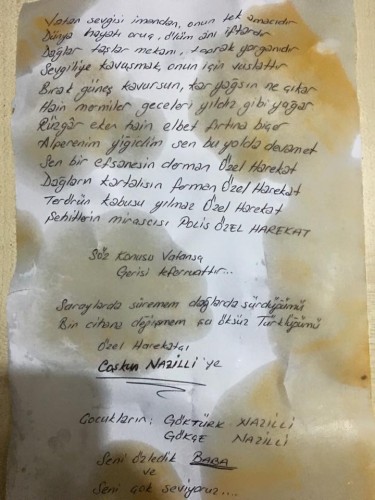 Vatan sevgisi imandan, onun tek amacıdır
Dünya hayatı oruç, ölüm ânı iftardır
Dağlar taşlar mekanı, toprak yorganıdır
Sevgiliye kavuşmak, onun için vuslattır
Bırak güneş kavursun, kar yağsın ne çıkar
Hain mermiler geceleri yıldız gibi yağar
Rüzgâr eken hain elbet fırtına biçer
Alperenim yiğidim sen bu yolda devam et
Sen bir efsanesin derman Özel Harekat
Dağların kartalısın ferman Özel Harekat
Terörün kabusu yılmaz Özel Harekat
Şehitlerin mirasçısı POLİS ÖZEL HAREKAT
Söz konusu Vatansa
Gerisi teferruattır...
Saraylarda süremem dağlarda sürdüğümü
Bin cihana değişmem şu öksüz Türklüğümü
Özel Harekatçı
Coşkun NAZİLLİ'ye
Çocukların: GÖKTÜRK NAZİLLİ
GÖKÇE NAZİLLİ
Seni özledik BABA
ve
Seni çok seviyoruz....